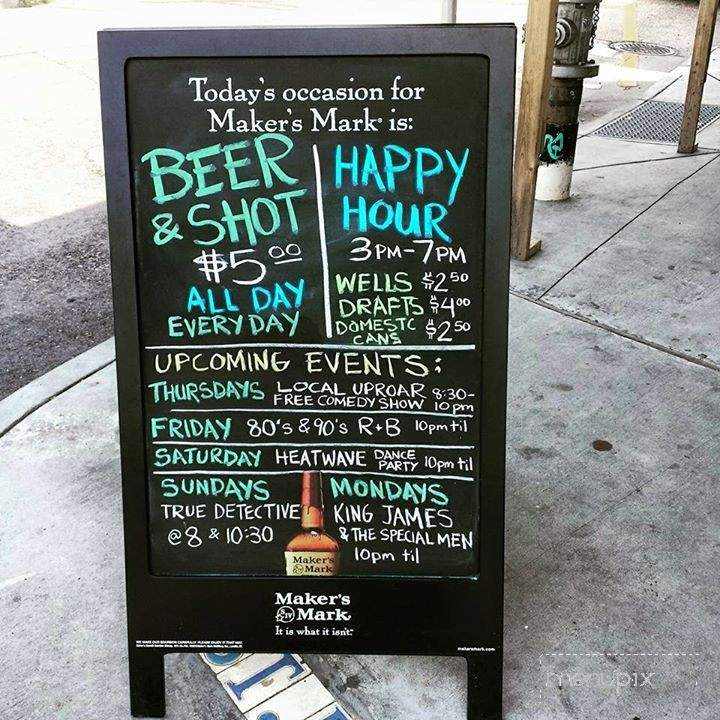 Today's occasion for
Maker's Mark® is:
BEER
& SHOT
$5.00
ALL DAY
EVERY DAY
HAPPY
HOUR
3PM-7PM
WELLS $2.50
DRAFTS $4.00
DOMESTC CANS $2.50
UPCOMING EVENTS:
THURSDAYS LOCAL UPROAR 8:30-
FREE COMEDY SHOW 10pm
FRIDAY 80's & 90's R+B 10pm til
SATURDAY HEATWAVE DANCE PARTY 10pm til
SUNDAYS
TRUE DETECTIVE
@ 8 & 10:30
MONDAYS
KING JAMES
& THE SPECIAL MEN
10pm til
Maker's
Mark
Maker's
SIV Mark
It is what it isn't.
WE MAKE OUR BOURBON CAREFULLY. PLEASE ENJOY IT THAT WAY.
makersmark.com
menupix